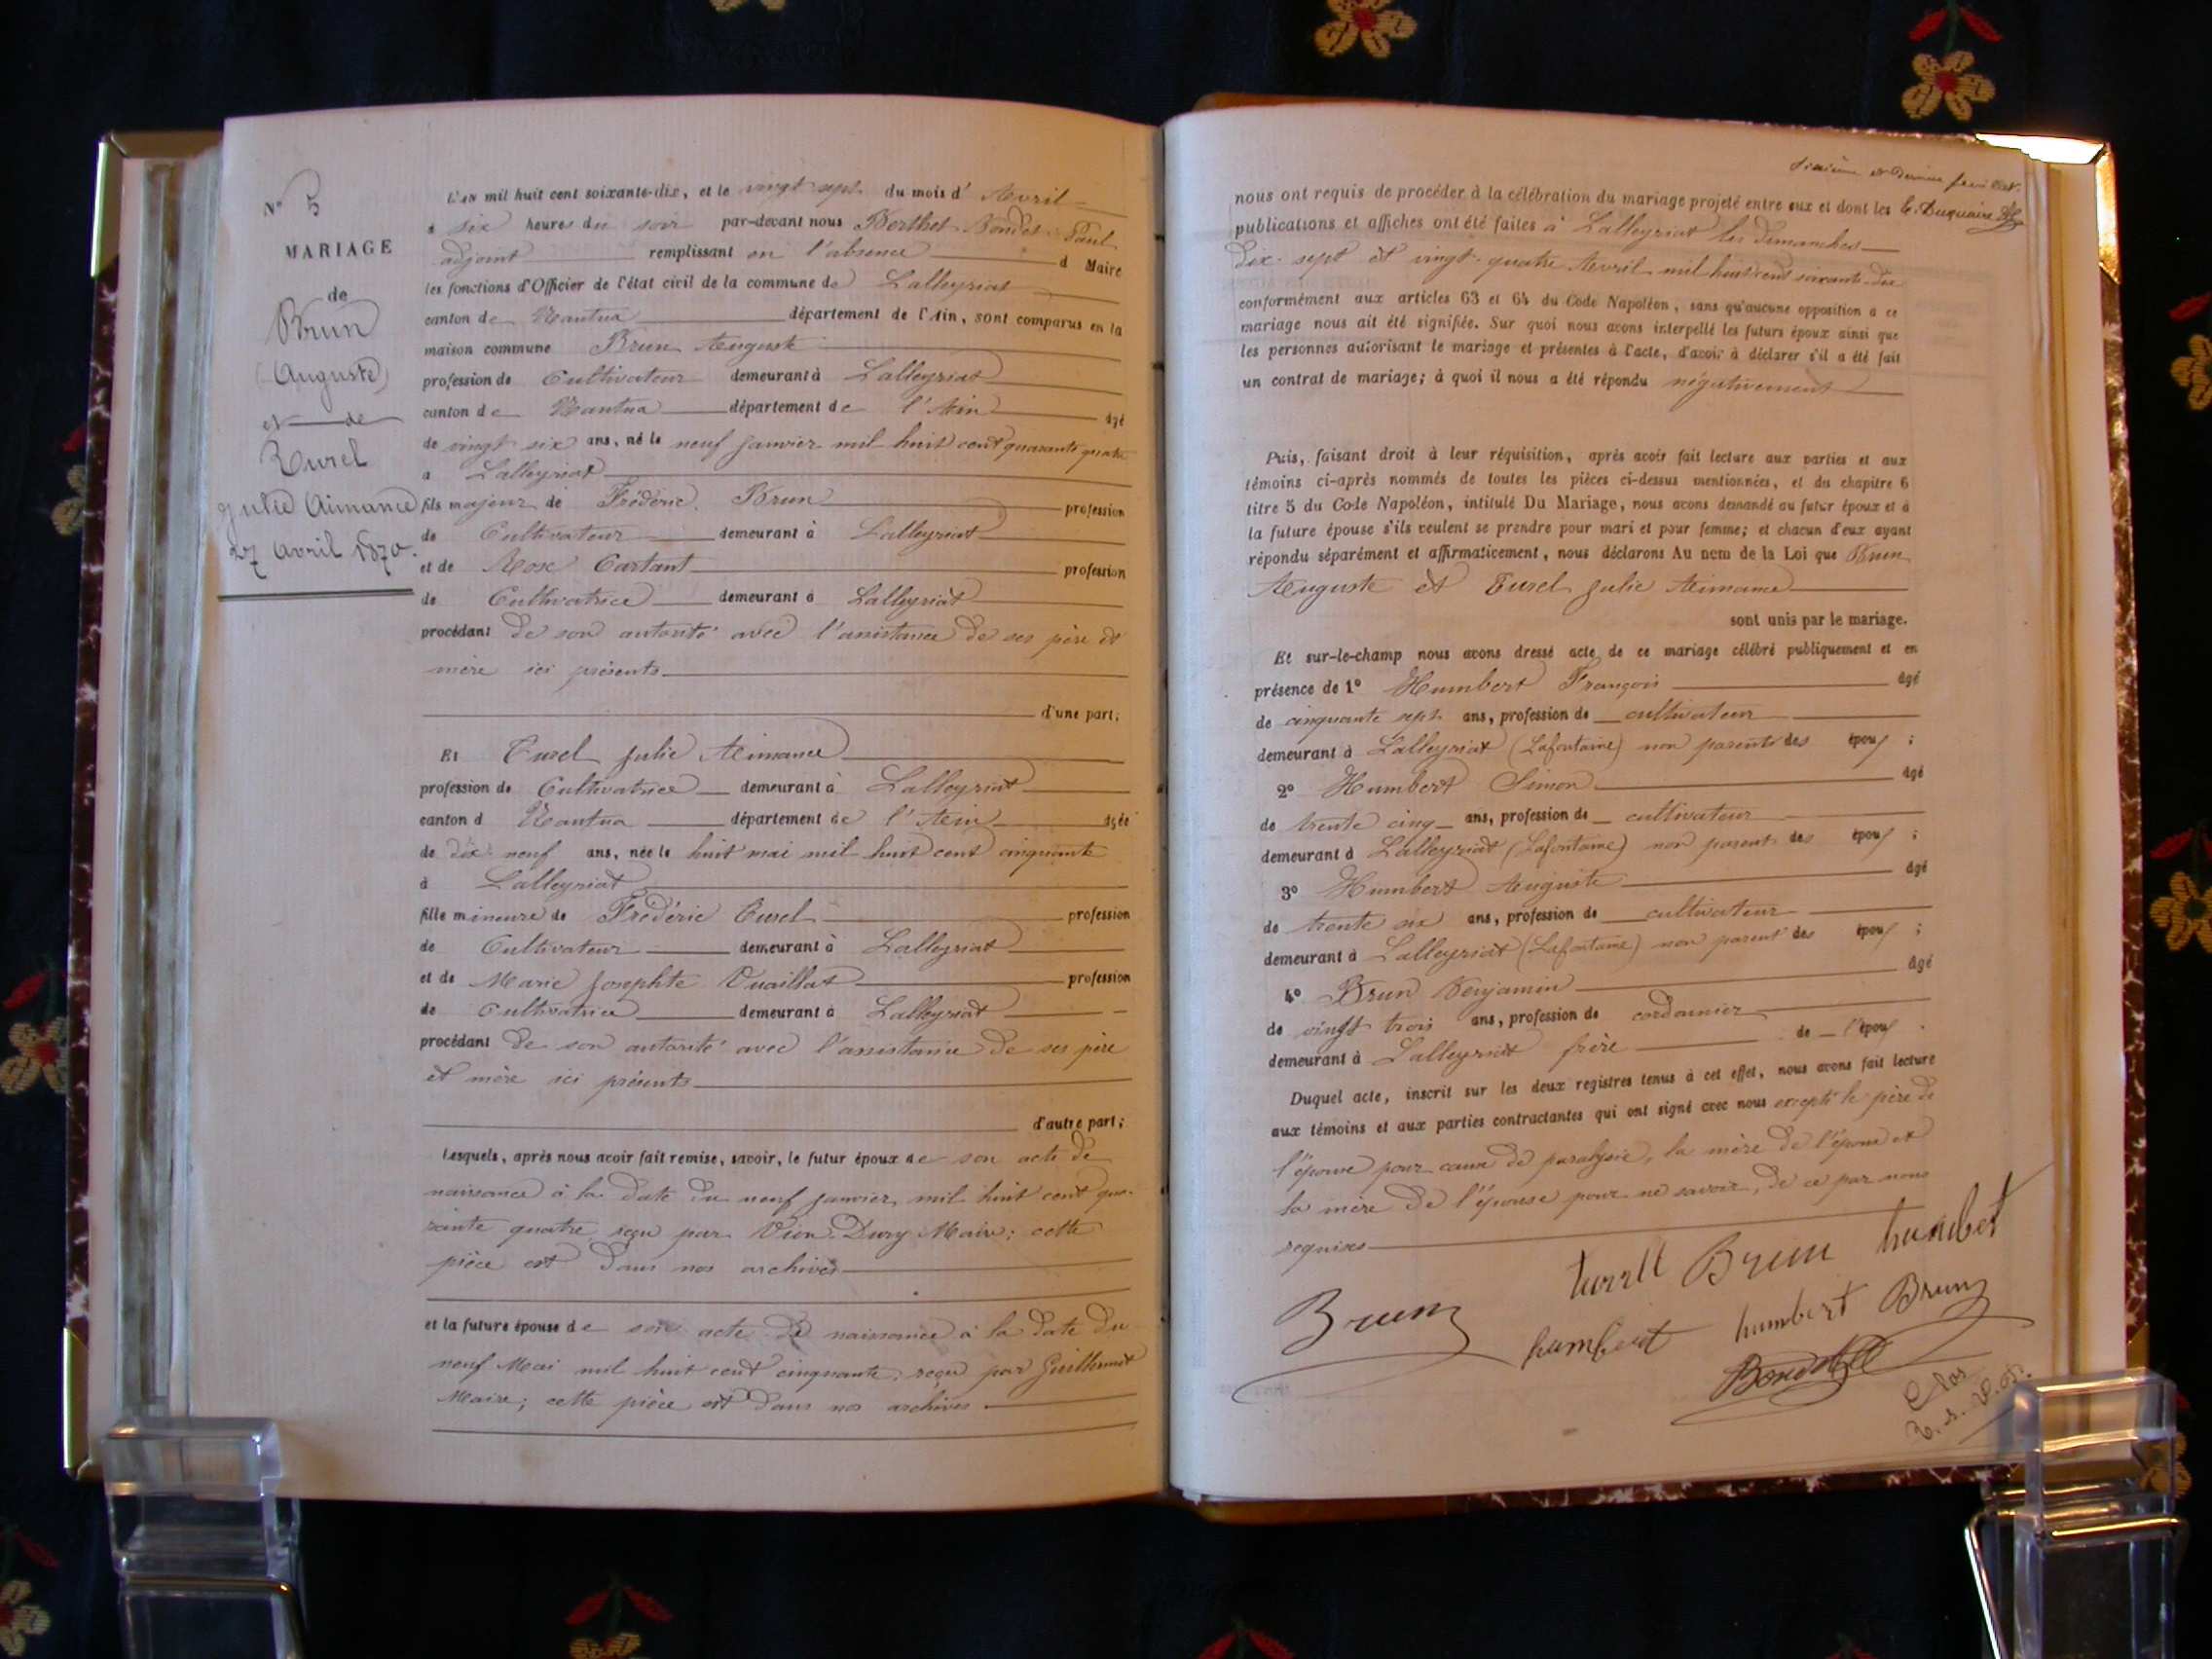 N° 5
MARIAGE
de
Brun
(Auguste)
et de
Turel
Julie Aimance
27 avril 1870.
L'AN mil huit cent soixante-dix, et le vingt sept du mois d' Avril
à six heures du soir par-devant nous Berthet-Bondet Paul
adjoint remplissant en l'absence d Maire
les fonctions d'Officier de l'état civil de la commune de Lalleyriat
canton de Nantua département de l'Ain, sont comparus en la
maison commune Brun Auguste
profession de Cultivateur demeurant à Lalleyriat
canton de Nantua département de l'Ain âgé
de vingt six ans, né le neuf janvier mil huit cent quarante quatre
à Lalleyriat
fils majeur de Frédéric Brun profession
de Cultivateur demeurant à Lalleyriat
et de Rose Cartant profession
de Cultivatrice demeurant à Lalleyriat
procédant de son autorité avec l'assistance de ses père et
mère ici présents
d'une part;
Et Turel Julie Aimance
profession de Cultivatrice demeurant à Lalleyriat
canton d Nantua département de l'Ain âgée
de dix-neuf ans, née le huit mai mil huit cent cinquante
à Lalleyriat
fille mineure de Frédéric Turel profession
de Cultivateur demeurant à Lalleyriat
et de Marie Josephte Vuaillat profession
de Cultivatrice demeurant à Lalleyriat
procédant de son autorité avec l'assistance de ses père
et mère ici présents
d'autre part;
Lesquels, après nous avoir fait remise, savoir, le futur époux de son acte de
naissance à la date du neuf janvier mil huit cent qua-
rante quatre reçu par Vion-Dury Maire; cette
pièce est dans nos archives
et la future épouse de son acte de naissance à la date du
neuf Mai mil huit cent cinquante, reçu par Guillermet
Maire; cette pièce est dans nos archives
sixième et dernier feuillet.
nous ont requis de procéder à la célébration du mariage projeté entre eux et dont les
publications et affiches ont été faites à Lalleyriat les dimanches
dix-sept et vingt-quatre Avril mil huit cent soixante-dix
conformément aux articles 63 et 64 du Code Napoléon, sans qu'aucune opposition a ce
mariage nous ait été signifiée. Sur quoi nous avons interpellé les futurs époux ainsi que
les personnes autorisant le mariage et présentes à l'acte, d'avoir à déclarer s'il a été fait
un contrat de mariage; à quoi il nous a été répondu négativement
Puis, faisant droit à leur réquisition, après avoir fait lecture aux parties et aux
témoins ci-après nommés de toutes les pièces ci-dessus mentionnées, et du chapitre 6
titre 5 du Code Napoléon, intitulé Du Mariage, nous avons demandé au futur époux et à
la future épouse s'ils veulent se prendre pour mari et pour femme; et chacun d'eux ayant
répondu séparément et affirmativement, nous déclarons Au nom de la Loi que Brun
Auguste et Turel Julie Aimance
sont unis par le mariage.
Et sur-le-champ nous avons dressé acte de ce mariage célébré publiquement et en
présence de 1° Humbert François âgé
de cinquante sept ans, profession de cultivateur
demeurant à Lalleyriat (Lafontaine) non parent des époux ;
2° Humbert Simon âgé
de trente cinq ans, profession de cultivateur
demeurant à Lalleyriat (Lafontaine) non parent des époux ;
3° Humbert Auguste âgé
de trente six ans, profession de cultivateur
demeurant à Lalleyriat (Lafontaine) non parent des époux ;
4° Brun Benjamin âgé
de vingt trois ans, profession de cordonnier
demeurant à Lalleyriat frère de l'époux .
Duquel acte, inscrit sur les deux registres tenus à cet effet, nous avons fait lecture
aux témoins et aux parties contractantes qui ont signé avec nous excepté le père de
l'épouse pour cause de paralysie, la mère de l'époux et
la mère de l'épouse pour ne savoir, de ce par nous
requises
turell Brun humbet
Brun humbert humbert Brun
Clos